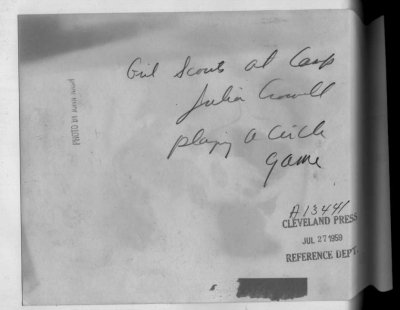 Girl Scouts at Camp
Julia Crowell
playing a circle
game
A13441
CLEVELAND PRESS
JUL 27 1959
REFERENCE DEPT.
PHOTO BY